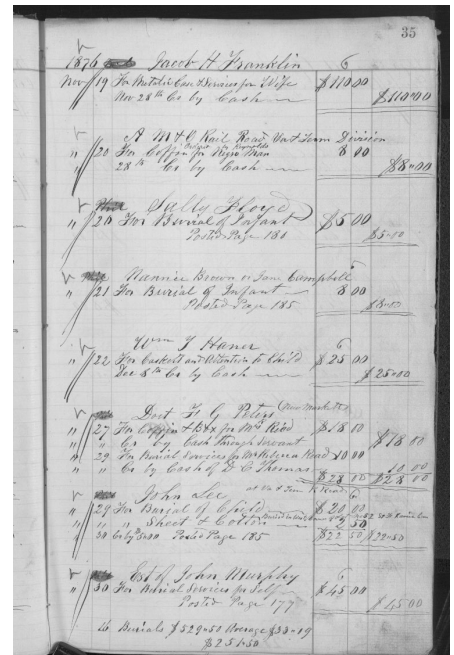 35
1876 Jacob H Franklin 6
Nov 19 For Metalic Case & Services for Wife $110 00
Nov 28th Cr by Cash $110 00
A M & O Rail Road Va & Tenn Division
" 20 For Coffin for Negro Man 8 00
" 28th Cr by Cash $8 00
Sally Floyd
" 20 For Burial of Infant $5 00
Posted Page 180 $5 00
Nannie Brown or Jane Campbell
" 21 For Burial of Infant 8 00
Posted Page 185 $8 00
Wm J Haner 6
" 22 For Caskett and Attention to Child $25 00
Dec 8th Cr by Cash $25 00
Doct F. G Peters
" 27 For Coffin & Box for Mrs $18 00
" " Cr by Cash Through Servant $18 00
" 29 For Burial Services for 10 00
" " Cr by Cash of D C Thomas 10 00
$28 00 $28 00
John Lee
" 29 For Burial of Child $20 00
" " " Sheet & Cotton 2 50
" 30 Cr by Posted Page 185 $22 50 $22 50
Est of John Murphy 6
" 30 For Burial Services for Self $45 00
Posted Page 177 $45 00
16 Burials $529 50 Average $33 09
$251 50